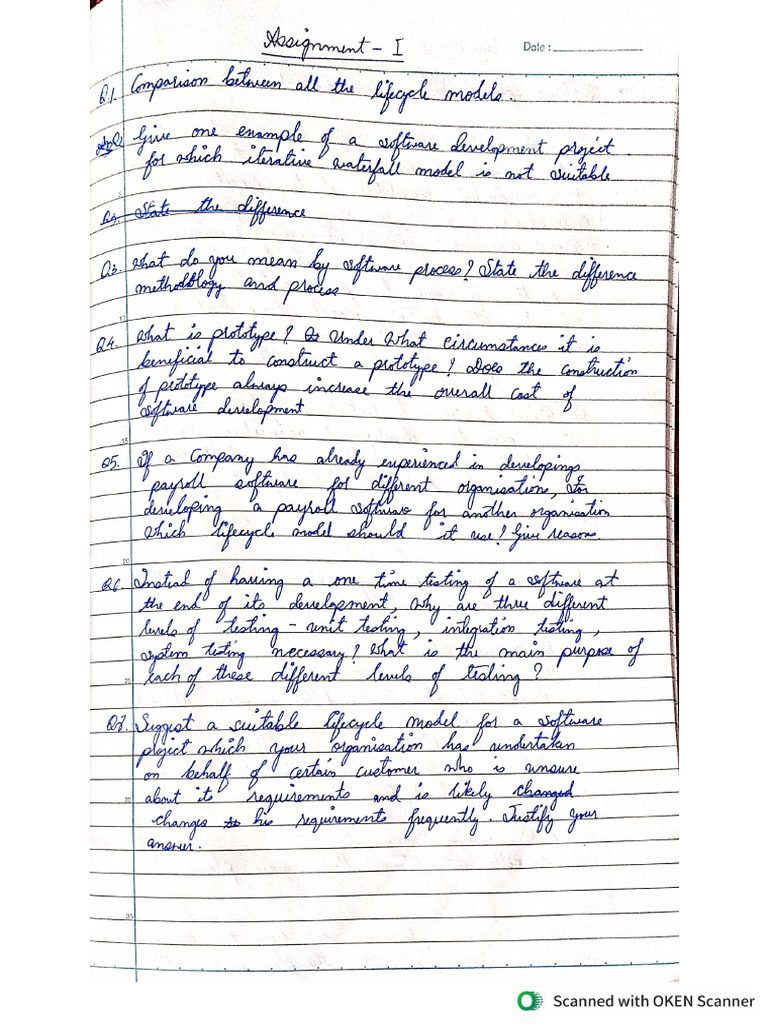 Assignment - I
Date :
Q1. Comparison between all the lifecycle models.
Give one example of a software development project
for which iterative waterfall model is not suitable
Q3. State the difference
Q3. What do you mean by software process? State the difference
methodology and process.
Q4. What is prototype? Under what circumstances it is
beneficial to construct a prototype? Does the construction
of prototype always increase the overall cost of
software development
Q5. If a Company has already experienced in developings
payroll software for different organisations, For
developing a payroll software for another organisation
which lifecycle model should it use? Give reasons.
Q6. Instead of having a one time testing of a software at
the end of its development, why are three different
levels of testing - unit testing, integration testing,
system testing necessary? What is the main purpose of
each of these different levels of testing?
Q7. Suggest a suitable lifecycle model for a software
project which your organisation has undertaken
on behalf of certain customer who is unsure
about its requirements and is likely changed
changes to his requirements frequently. Justify your
answer.
Scanned with OKEN Scanner